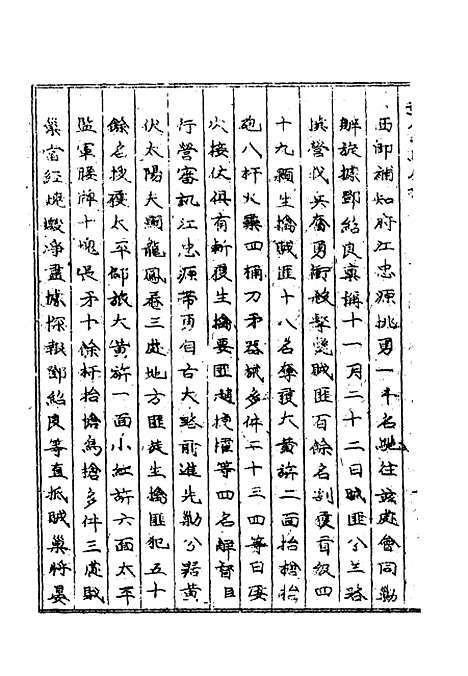 西即補知府江忠源挑勇一千名馳往該處會同勦
辦旋據鄧紹良稟稱十一月二十二日賊匪分三路
撲營伐兵奮勇衝殺擊斃賊匪百餘名割獲首級四
十九顆生擒賊匪十八名奪獲大黃旂二面抬槍抬
砲八杆火藥四桶刀矛器械多件二十三四等日屢
次接仗俱有斬獲生擒要匪趙按懂等四名解督目
行營審訊江忠源帶勇自古大路前進先勦分路黃
伏太陽夫嗣龍鳳巷三處地方匪徒生擒匪犯五十
餘名搜獲太平部旅大黃旂一面小紅旂六面太平
監軍腰牌十塊長矛十餘杆抬槍鳥槍多件三處賊
巢當經燒燬淨盡據探報鄧紹良等直抵賊巢將晏